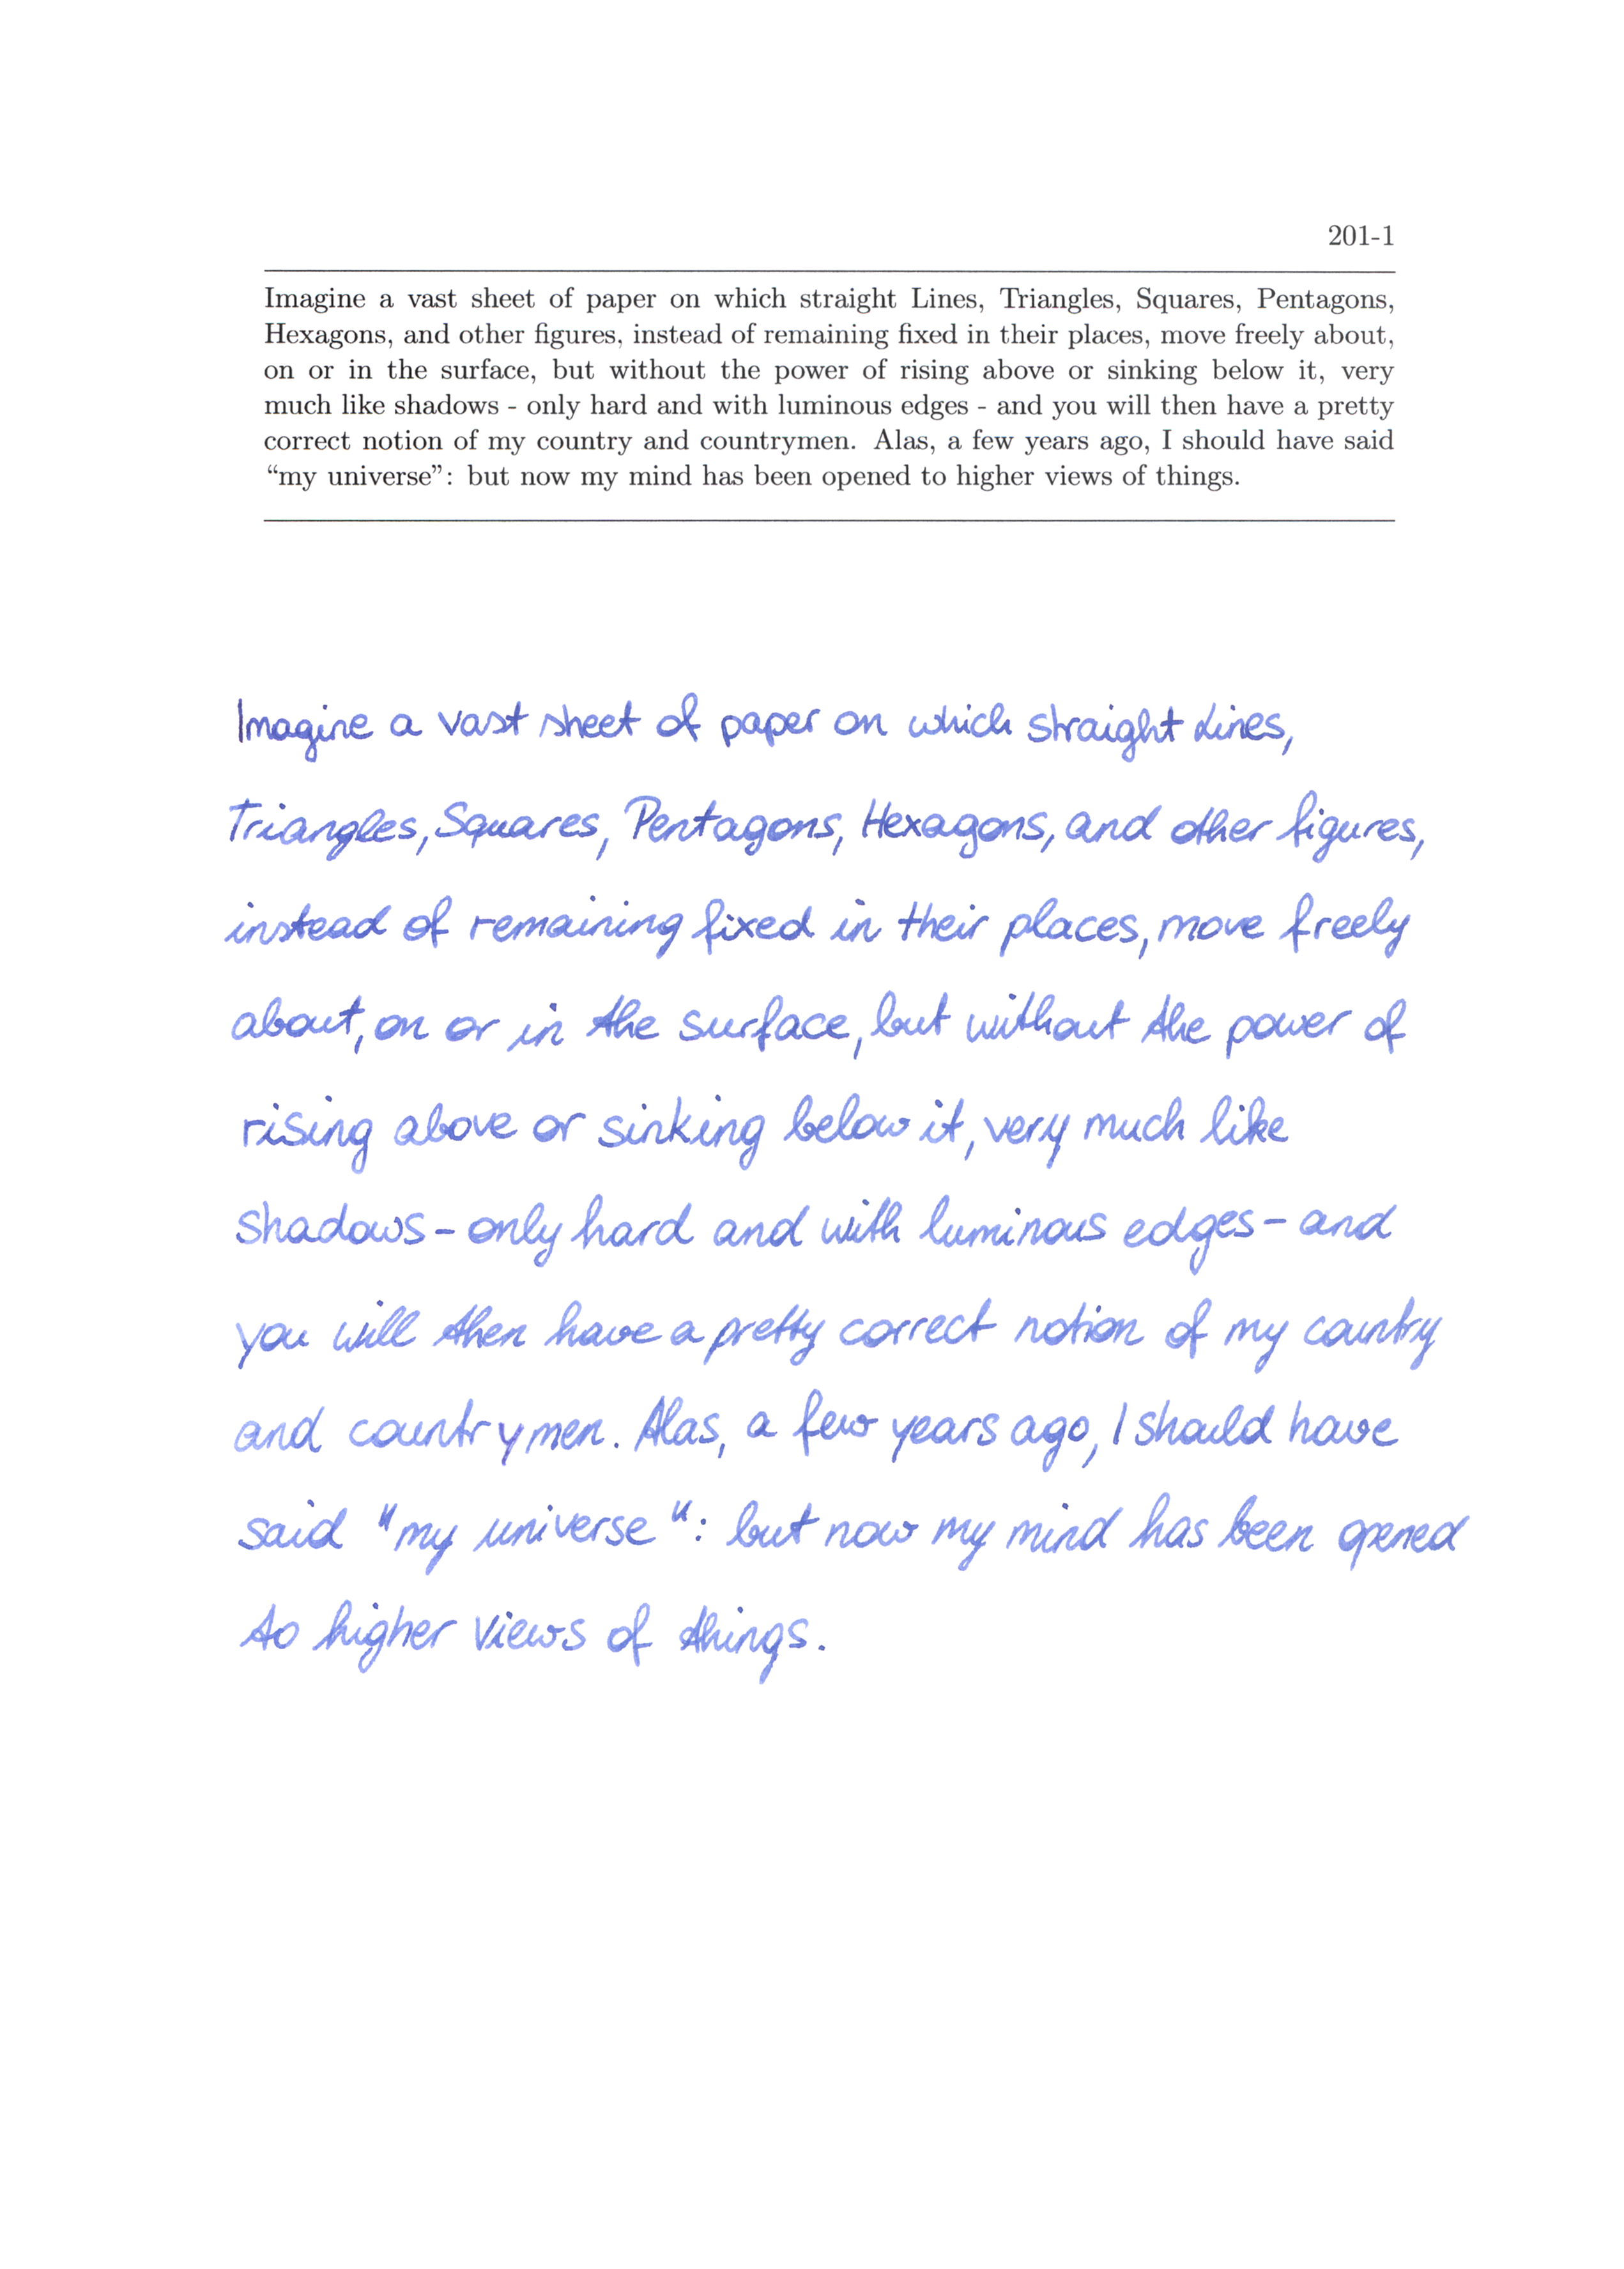 201-1
Imagine a vast sheet of paper on which straight Lines, Triangles, Squares, Pentagons,
Hexagons, and other figures, instead of remaining fixed in their places, move freely about,
on or in the surface, but without the power of rising above or sinking below it, very
much like shadows - only hard and with luminous edges - and you will then have a pretty
correct notion of my country and countrymen. Alas, a few years ago, I should have said
“my universe”: but now my mind has been opened to higher views of things.
Imagine a vast sheet of paper on which straight Lines,
Triangles, Squares, Pentagons, Hexagons, and other figures,
instead of remaining fixed in their places, move freely
about, on or in the surface, but without the power of
rising above or sinking below it, very much like
shadows - only hard and with luminous edges - and
you will then have a pretty correct notion of my country
and countrymen. Alas, a few years ago, I should have
said "my universe": but now my mind has been opened
to higher views of things.